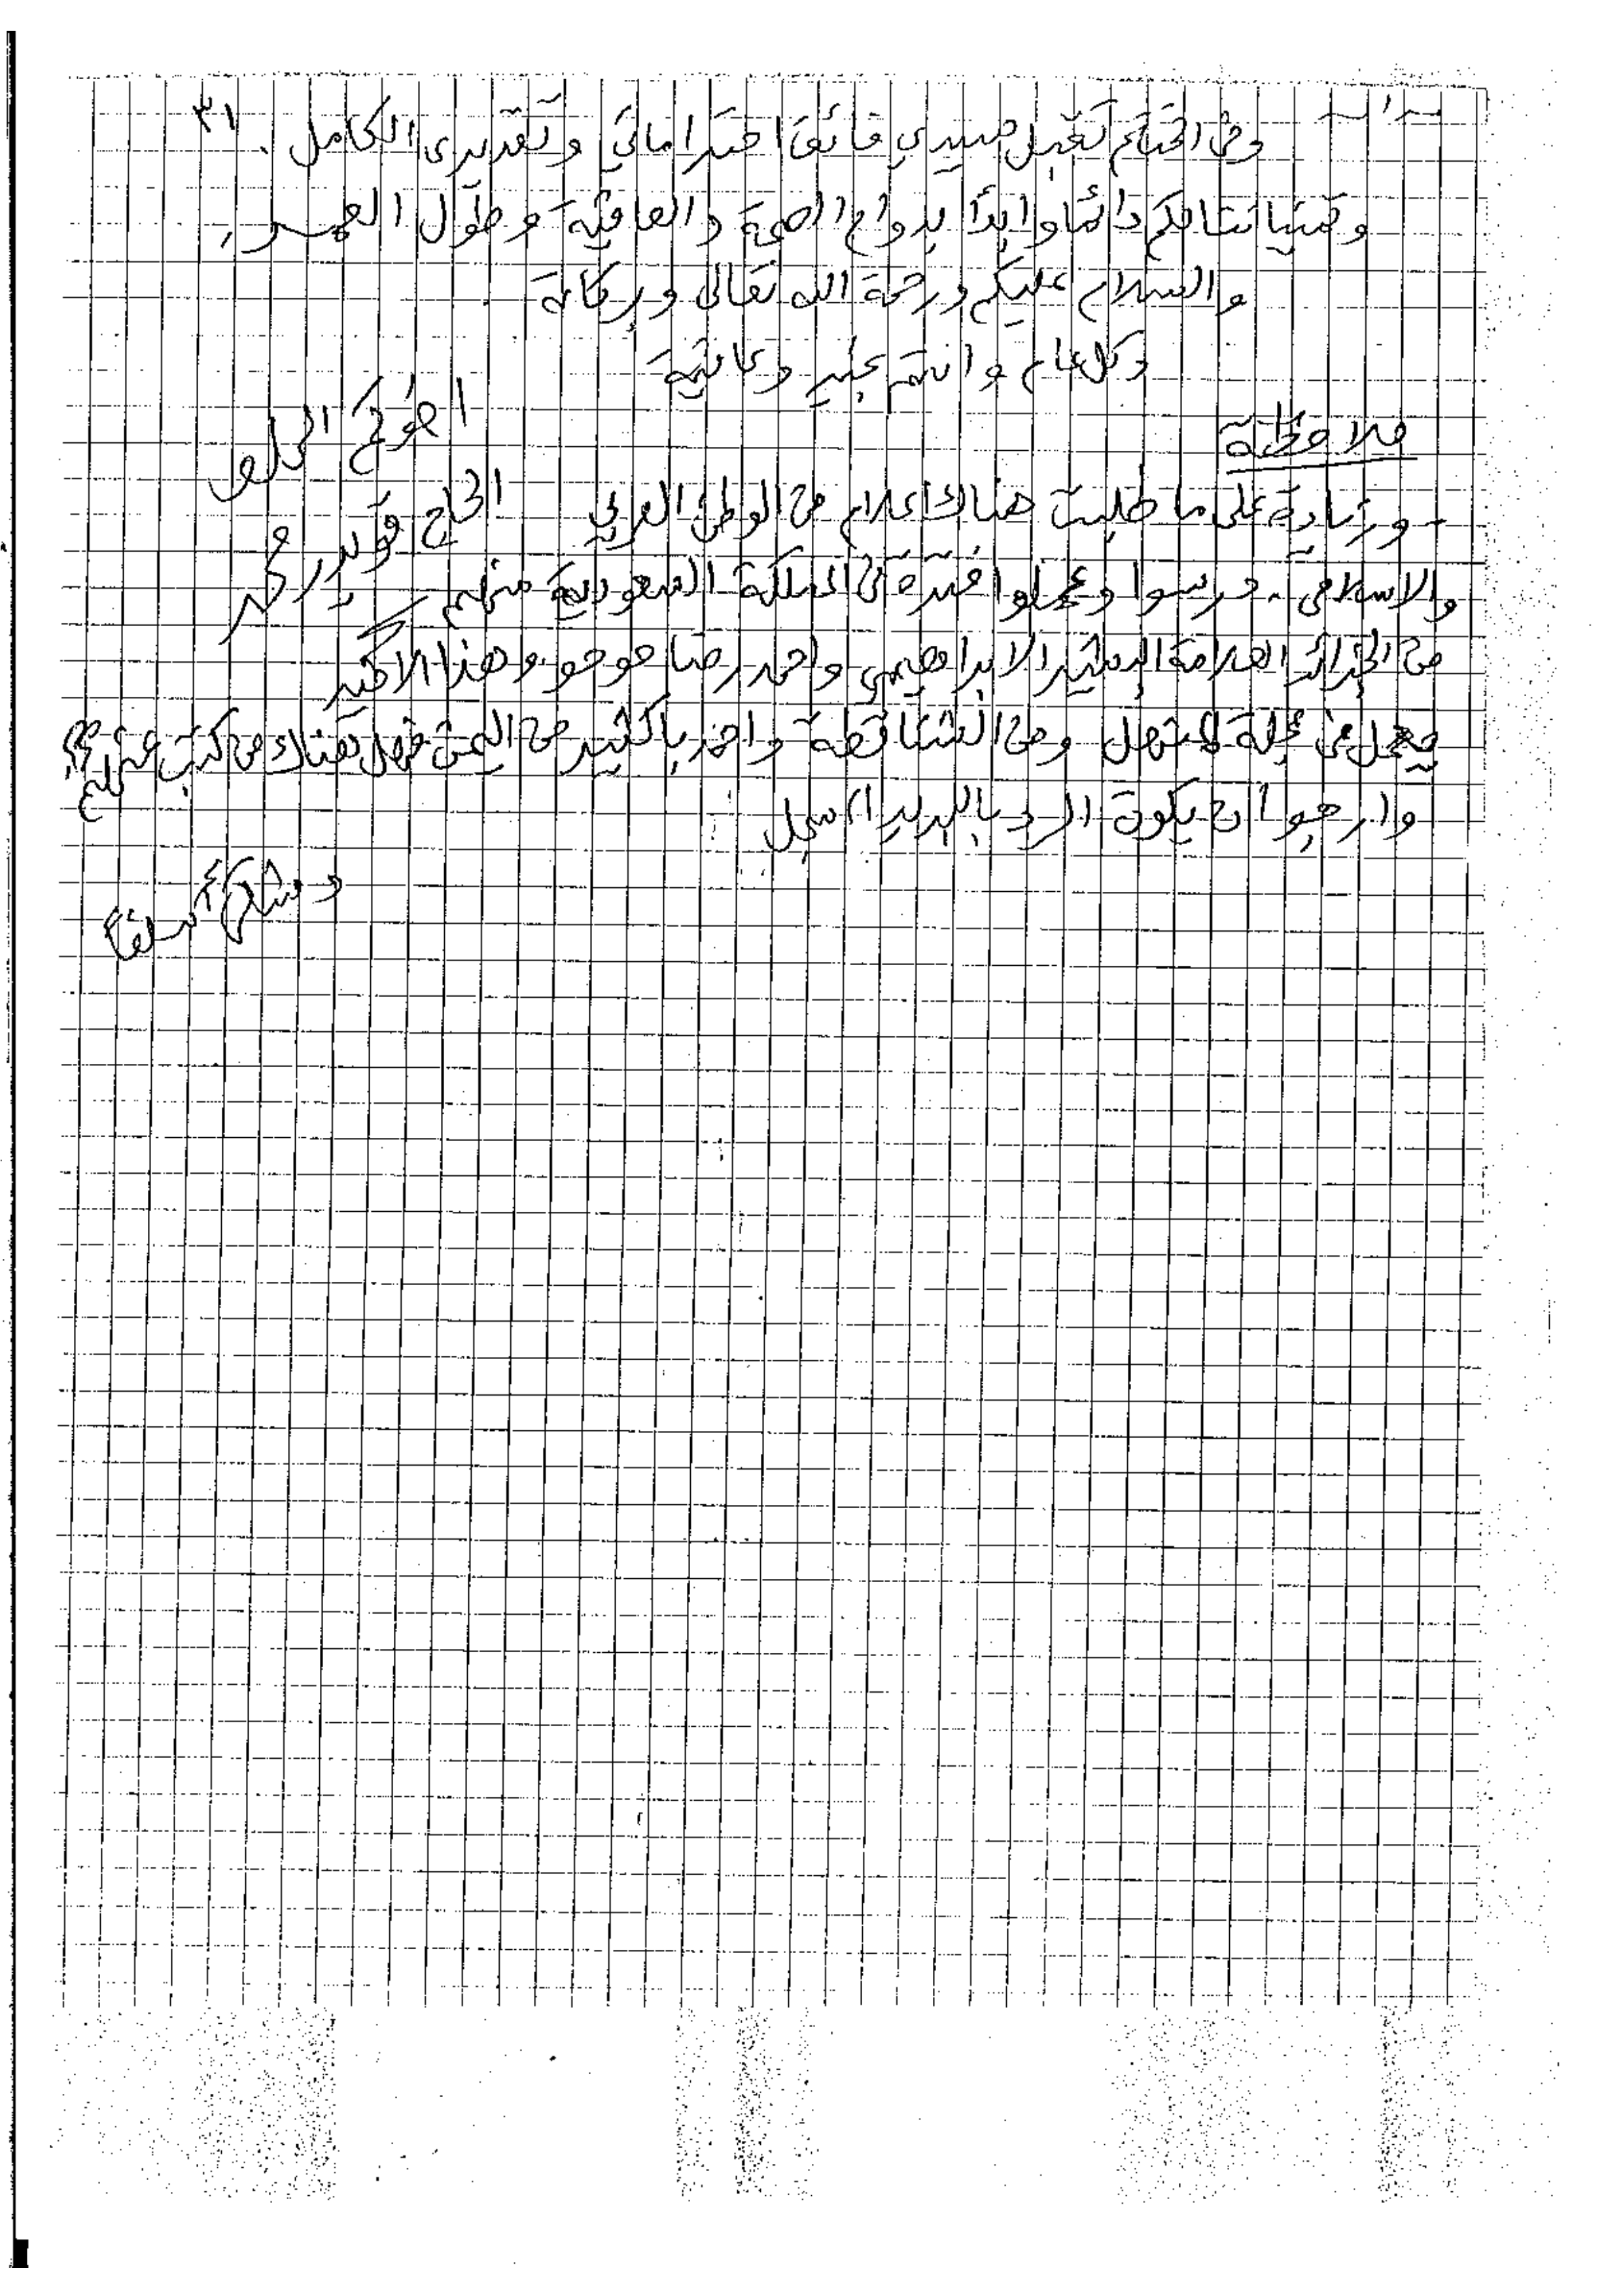 وفي الختام تقبل سيدي فائق احتراماتي وتقديري الكامل . ٣١
وتمنياتنا لكم دائما وابدأ بدوام الصحة والعافية وطول العمر,
والسلام عليكم ورحمة الله تعالى وبركاتة
وكل عام وانتم بخير وعافية
اخوكم
ملاحظة
- وزيادة على ما طلبت هناك اعلام من الوطن العربي
الحاج قويدر محمد
والاسلامي . درسوا وعملوا فترة في المملكة السعودية منهم
من الجزائر العلامة البشير الابراهيمي واحمد رضا حوحو وهذا الاخير
يعمل في مجلة المنهل ومن الشناقطة واحمد باكثير من اليمن فهل هناك من كتب عنهم
وارجوا ان يكون الرد بالبريد
وشكرأ مسبقأ